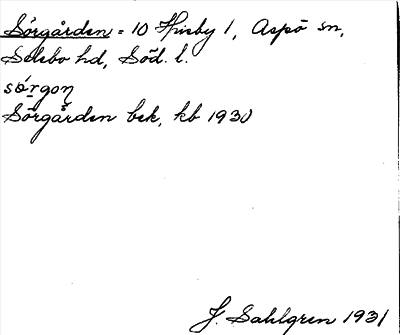 Sörgården = 10 Husby 1, Aspö sn,
Selebo hd, Söd. l.
sö́rgoņ
Sörgården bek, kb 1930
J. Sahlgren 1931